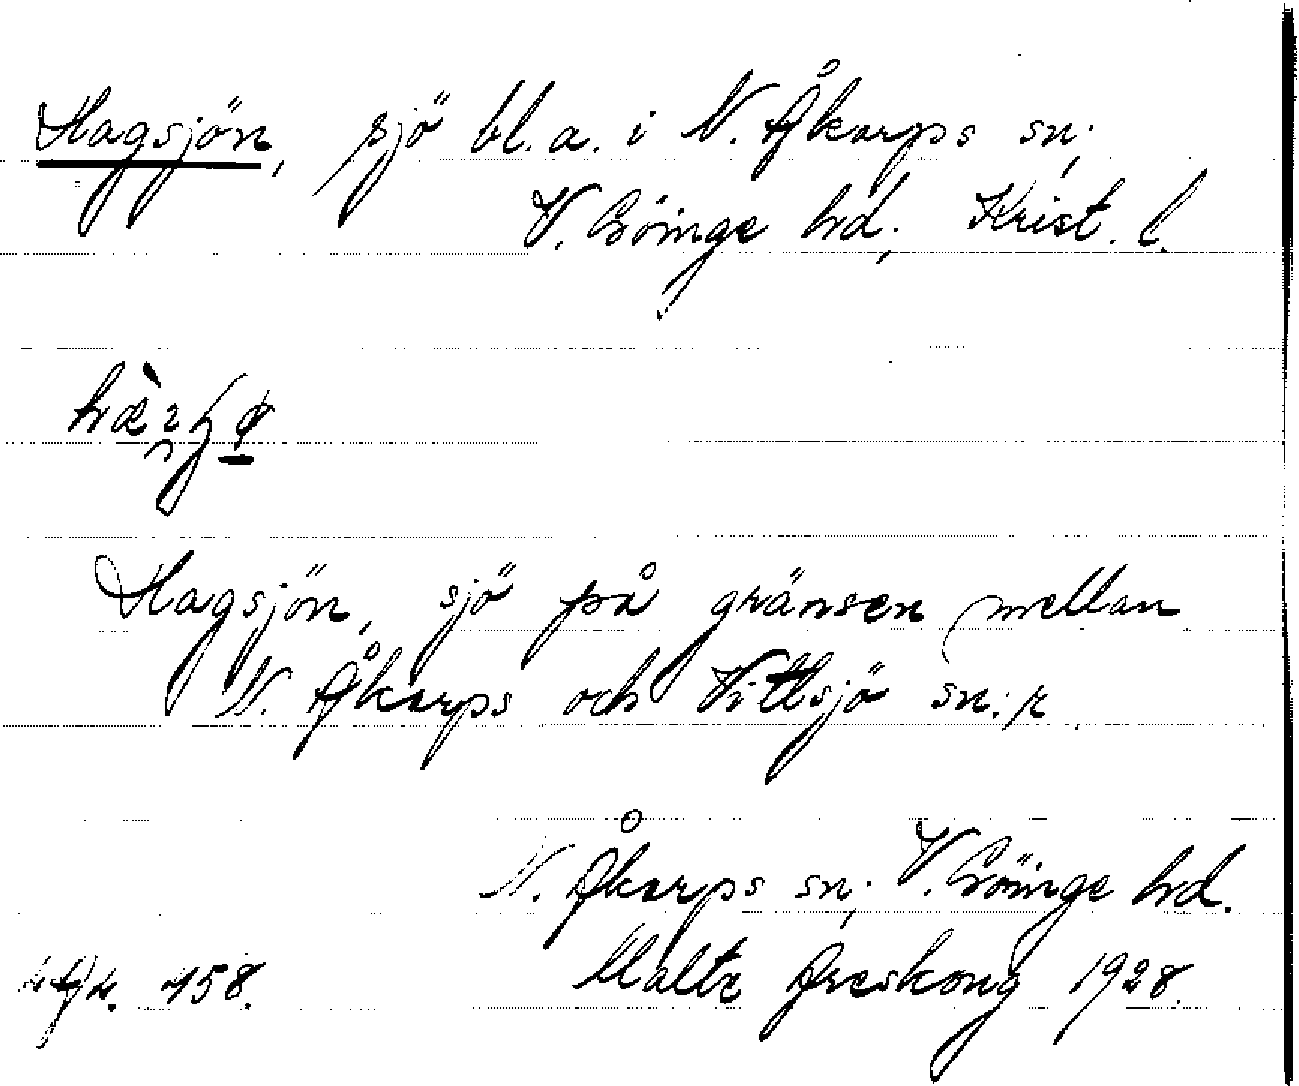 Hagsjön, sjö bl.a. i N. Åkarps sn;
V. Göinge hd; Krist. l.
Hagsjön, sjö på gränsen mellan
N. Åkarps och Vittsjö sn:r.
N. Åkarps sn; V. Göinge hd.
458. Malte Areskoug 1928.